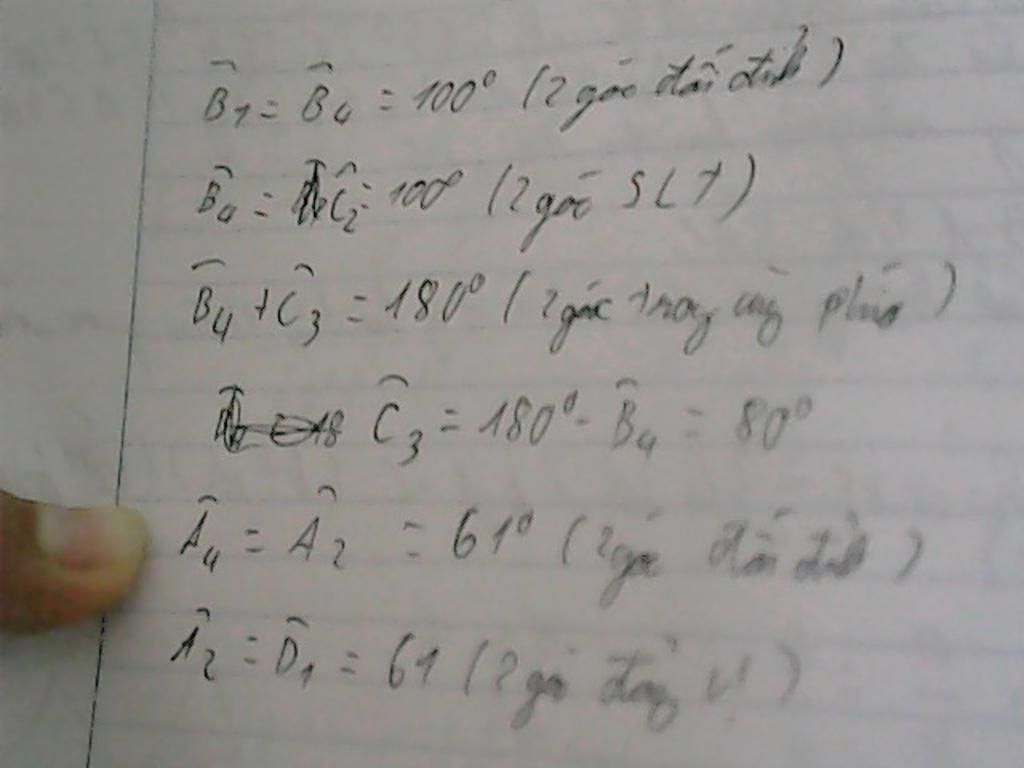 B̂₁ = B̂₄ = 100⁰ (2 góc đối đỉnh)
B̂₄ = Ĉ₂ = 100⁰ (2 góc SLT)
B̂₄ + Ĉ₃ = 180⁰ (2 góc trong cùng phía)
Ĉ₃ = 180⁰ - B̂₄ = 80⁰
Â₄ = Â₂ = 61⁰ (2 góc đối đỉnh)
Â₂ = D̂₁ = 61 (2 góc đồng vị)